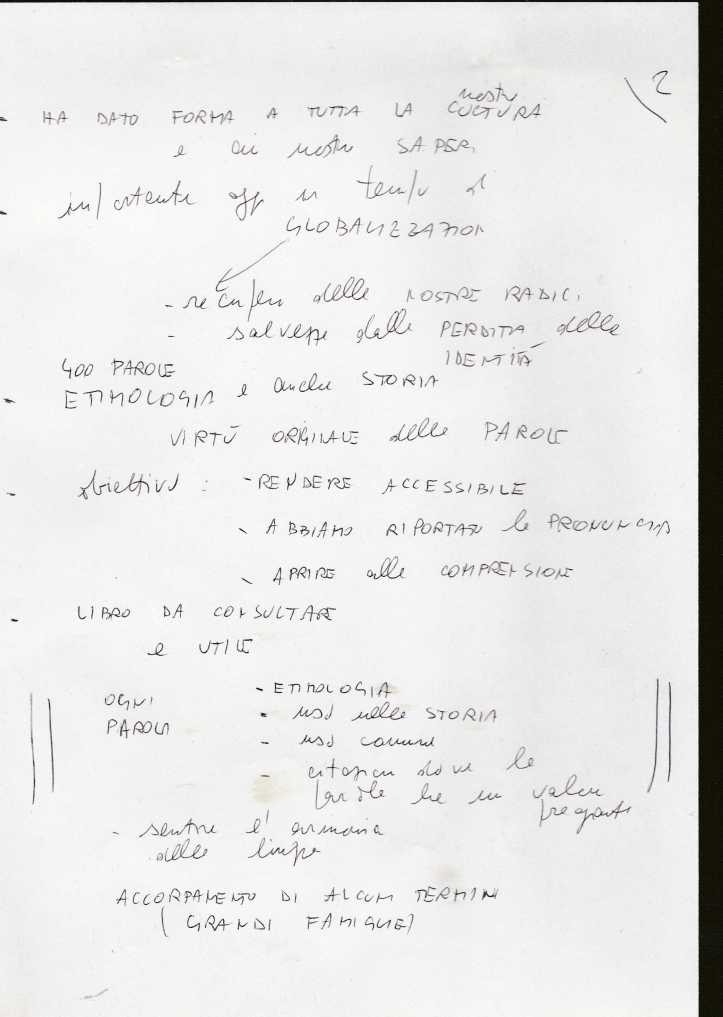 2
nostra
- HA DATO FORMA A TUTTA LA CULTURA
e ai nostri SAPERI
- importante oggi in tempo di
GLOBALIZZAZIONI
- recupero delle NOSTRE RADICI
- salvezza dalla PERDITA delle
IDENTITÀ
400 PAROLE
- ETIMOLOGIA e anche STORIA
VIRTÙ ORIGINALE delle PAROLE
- obiettivo : - RENDERE ACCESSIBILE
- ABBIAMO RIPORTATO la PRONUNCIA
- APRIRE alla COMPRENSIONE
- LIBRO DA CONSULTARE
e UTILE
OGNI - ETIMOLOGIA
PAROLA - uso nella STORIA
- uso comune
- citazioni dove la
parola ha un valore
pregnante
- sentire l'armonia
della lingua
ACCORPAMENTO DI ALCUNI TERMINI
(GRANDI FAMIGLIE)